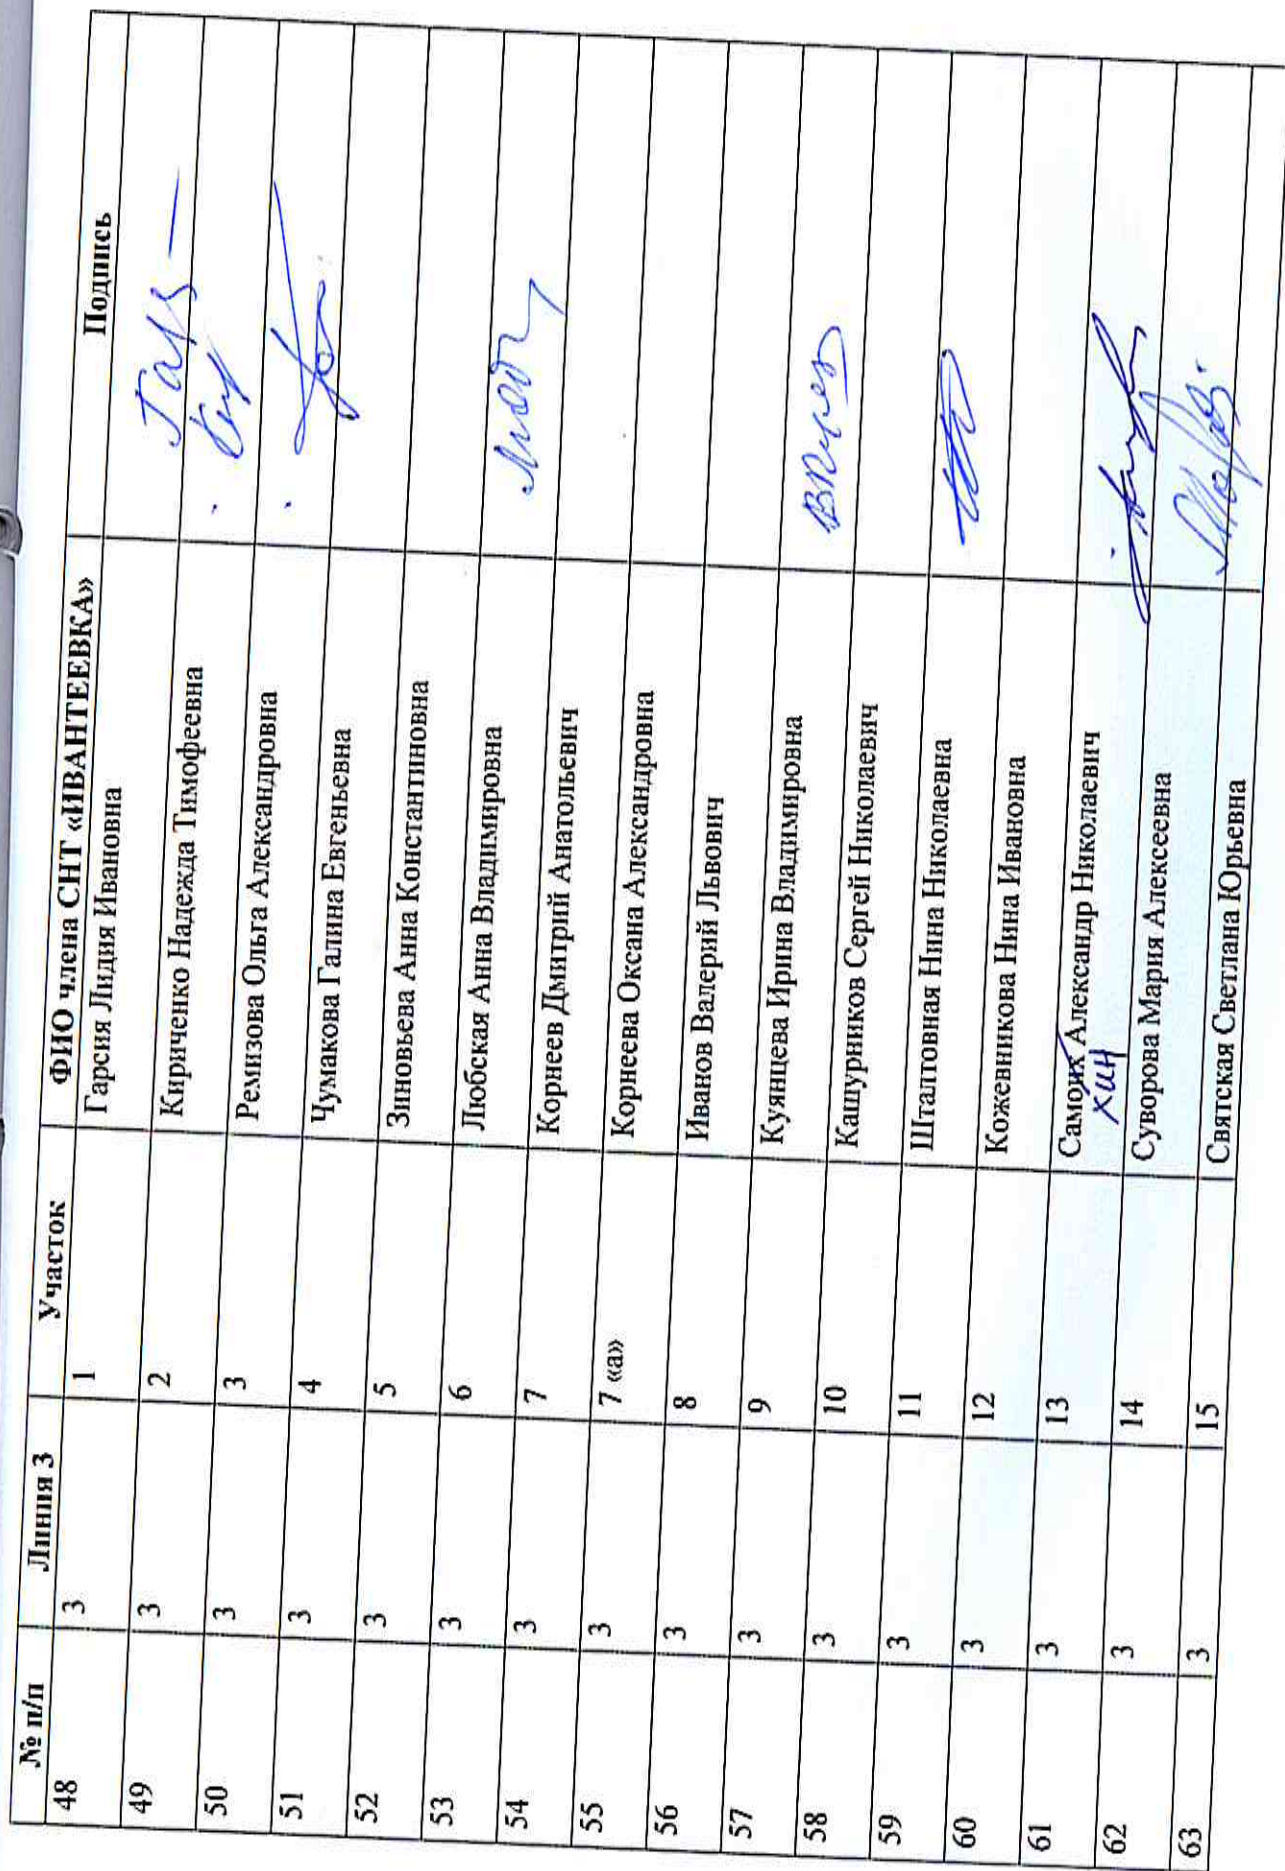 № п/п Линия 3 Участок ФИО члена СНТ «ИВАНТЕЕВКА» Подпись
48 3 1 Гарсия Лидия Ивановна
49 3 2 Кириченко Надежда Тимофеевна
50 3 3 Ремизова Ольга Александровна
51 3 4 Чумакова Галина Евгеньевна
52 3 5 Зиновьева Анна Константиновна
53 3 6 Любская Анна Владимировна
54 3 7 Корнеев Дмитрий Анатольевич
55 3 7 «а» Корнеева Оксана Александровна
56 3 8 Иванов Валерий Львович
57 3 9 Куянцева Ирина Владимировна
58 3 10 Кашурников Сергей Николаевич
59 3 11 Шталтовная Нина Николаевна
60 3 12 Кожевникова Нина Ивановна
61 3 13 Самоих Александр Николаевич
хин
62 3 14 Суворова Мария Алексеевна
63 3 15 Святская Светлана Юрьевна